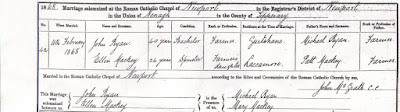 1868. Marriage solemnized at the Roman Catholic Chapel of Newport in the Registrar's District of Newport
in the Union of Nenagh in the County of Tipperary
No. When Married. Name and Surname. Age. Condition. Rank or Profession. Residence at the Time of Marriage. Father's Name and Surname. Rank or Profession of Father.
February 1868 John Ryan 40 year Bachelor Farmer Michael Ryan Farmer
Ellen Mackey 26 year Spinster Farmers daughter Patt Mackey Farmer
Married in the Roman Catholic Chapel of Newport according to the Rites and Ceremonies of the Roman Catholic Church by me,
John McGrath C.C.
This Marriage was solemnized between us John Ryan Ellen Mackey in the Presence of us Michael Ryan Mary Mackey